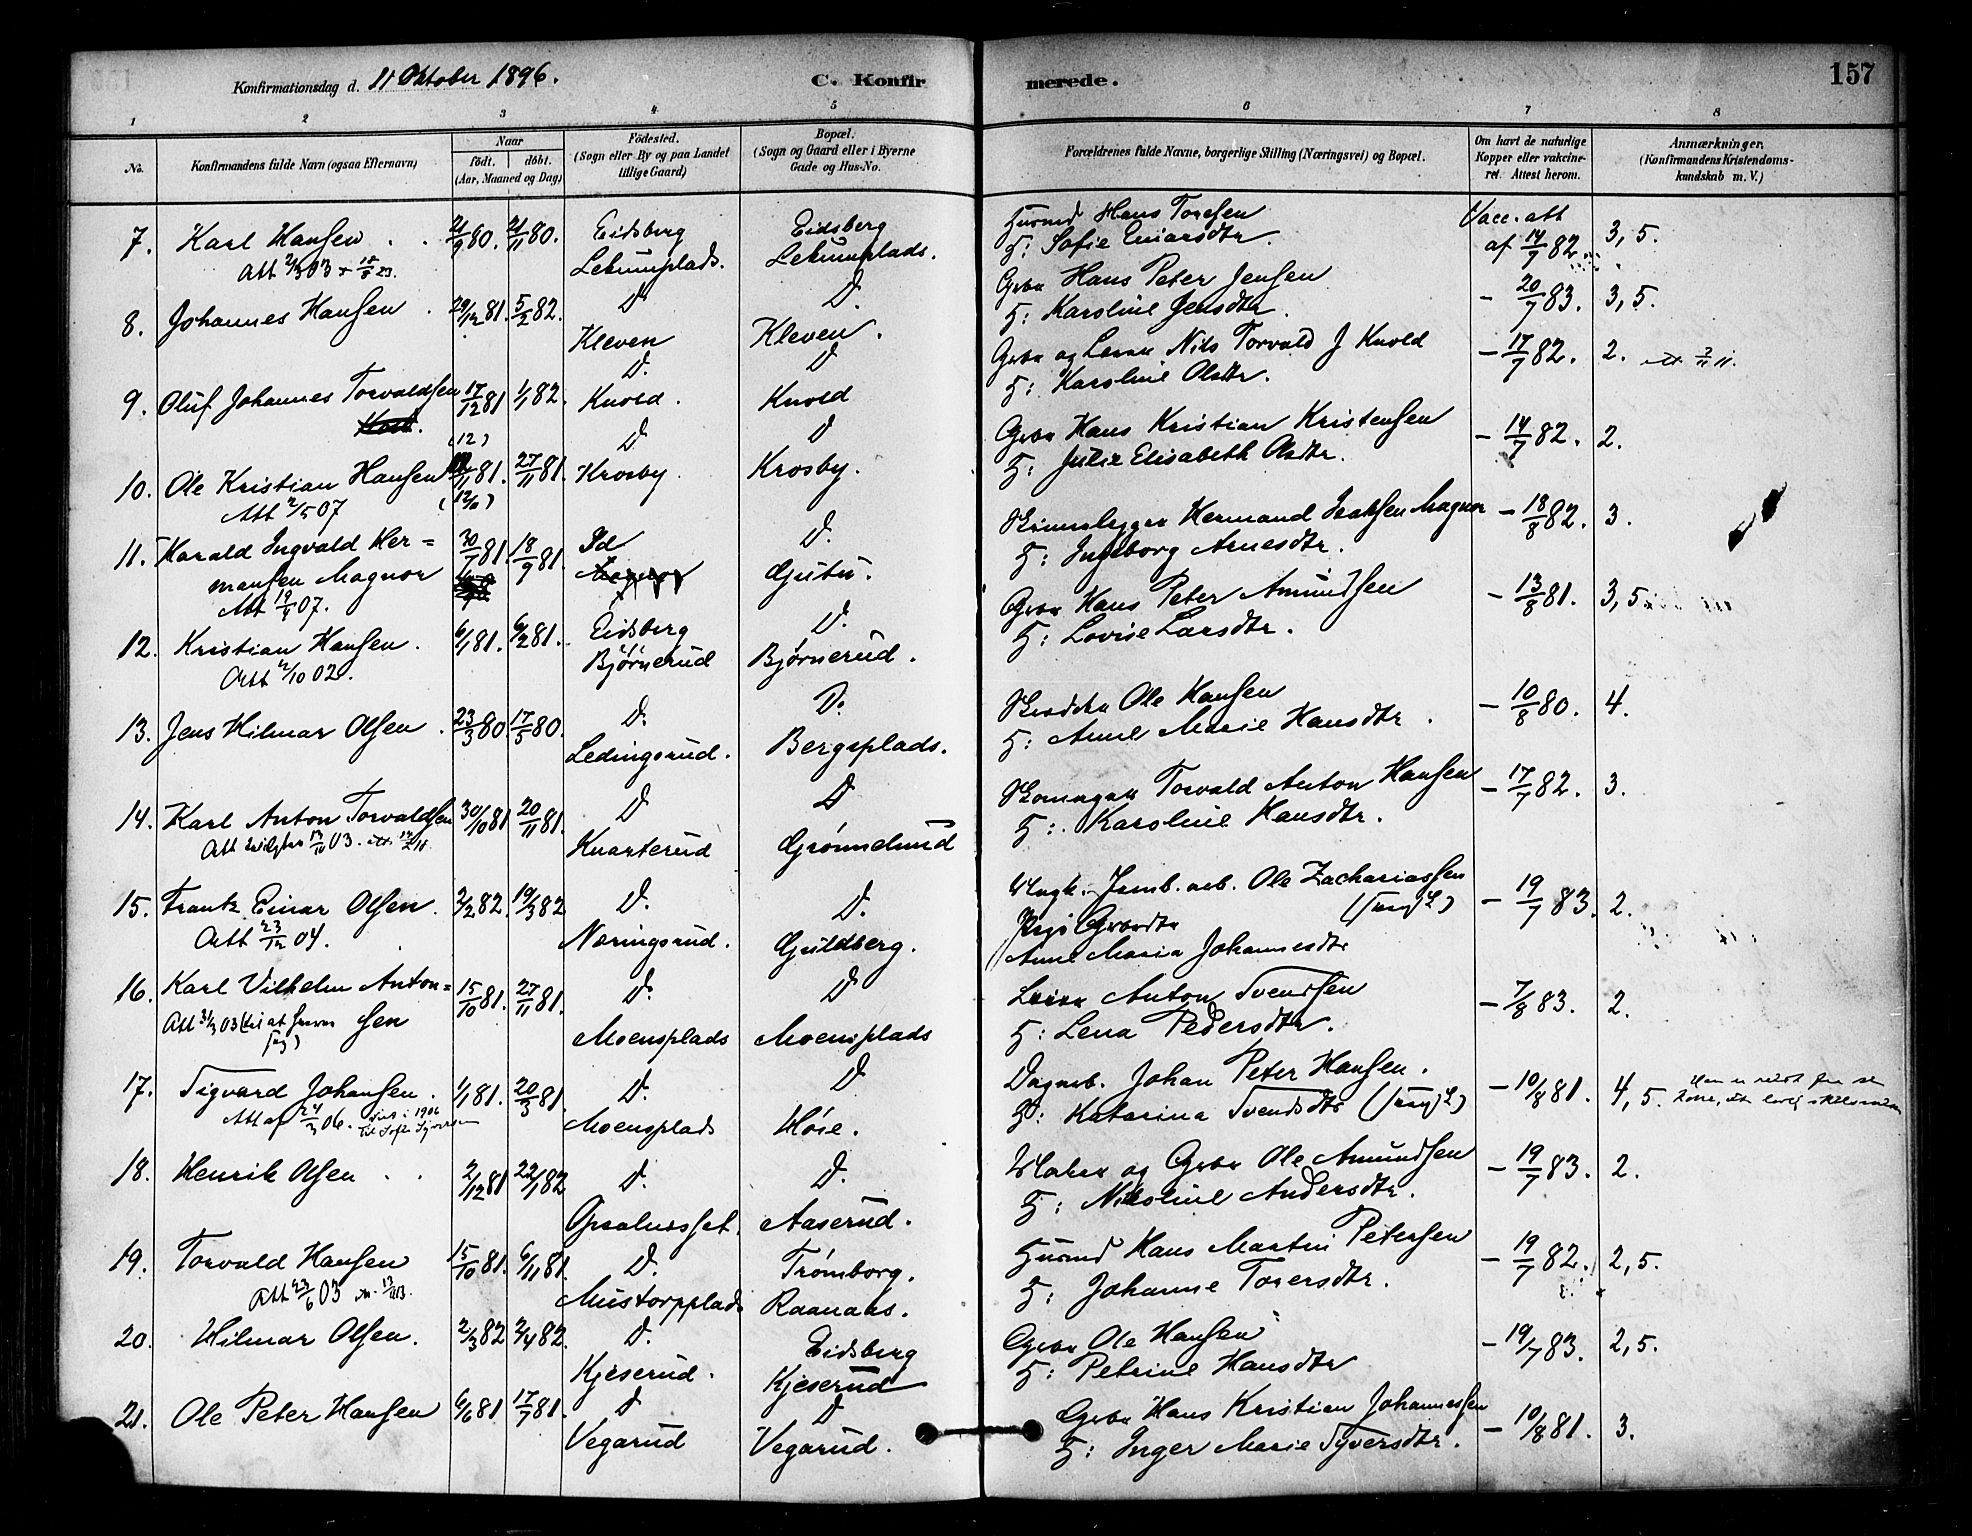 Konfirmationsdag d. 11 Oktober 1896. C. Konfir merede. 157
1 2 3 4 5 6 7 8
No. Konfirmandens fulde Navn (ogsaa Efternavn)
Naar
födt. döbt.
(Aar, Maaned og Dag)
Födested.
(Sogn eller By og paa Landet
tillige Gaard)
Bopæl.
(Sogn og Gaard eller i Byerne
Gade og Hus-No.
Forældrenes fulde Navne, borgerlige Stilling (Næringsvei) og Bopæl.
Om havt de naturlige
Kopper eller vakcine-
ret. Attest herom.
Anmærkninger.
(Konfirmandens Kristendoms-
kundskab m. V.)
7. Karl Hansen 21/9 80. 21/11 80. Eidsberg Eidsberg Husmd Hans Toresen Vacc. att
Att 2/3 03 Lekumplads. Lekumplads. H: Sofie Einarsdtr. af 14/7 82. 3, 5.
8. Johannes Hansen 29/12 81. 5/2 82. D. D. Gbr Hans Peter Jensen - 20/7 83. 3, 5.
Kleven Kleven. H: Karoline Jensdtr.
9. Oluf Johannes Torvaldsen 17/12 81 1/1 82. D. D Gbr og Nils Torvald J Knold - 17/7 82. 2.
Knold. Knold H: Karoline Olsdtr.
10. Ole Kristian Hansen 81. 27/11 81. D D Gbr Hans Kristian Kristensen - 14/7 82. 2.
Att 2/5 07 (12/11) Krosby. Krosby. H: Julie Elisabeth Olsdtr.
11. Harald Ingvald Her= 30/7 81. 18/9 81. Id D. Hermand Isaksen Magnor - 18/8 82. 3.
mansen Magnor Gutu. H: Ingeborg Arnesdtr.
Att 19/4 07.
12. Kristian Hansen. 6/1 81. 6/2 81. Eidsberg D. Gbr Hans Peter Amundsen - 13/8 81. 3, 5.
Att 2/10 02. Bjørnerud Bjørnerud. H: Lovise Larsdtr.
13. Jens Hilmar Olsen. 23/3 80. 17/5 80. D. D. Skrædder Ole Hansen - 10/8 80. 4.
Ledingsrud. Bergsplads. H: Anne Marie Hansdtr.
14. Karl Anton Torvaldsen 30/10 81 20/11 81. D D Skomager Torvald Anton Hansen - 17/7 82. 3.
Att 03. Kvarterud Grønnelund H: Karoline Hansdtr.
15. Frantz Einar Olsen. 2/2 82. 19/3 82 D. D. Ungk. Jernb. arb. Ole Zachariassen - 19/7 83. 2.
Att 23/12 04. Næringsrud. Guldberg. Pige
Anne Maria Johannesdtr
16. Karl Vilhelm Anton= 15/10 81. 27/11 81. D. D Anton Svendsen - 7/8 83. 2.
Att 31/3 03 sen Moensplads Moensplads H: Lena Pedersdtr.
17. Sigvard Johansen. 1/1 81. 20/3 81. D. D Dagarb. Johan Peter Hansen. - 10/8 81. 4, 5.
Att af 24/3 06. Moensplads Høie. H: Katarina Svendsdtr
18. Henrik Olsen 2/12 81 22/1 82 D. D. Maler og Gbr Ole Amundsen - 19/7 83. 2.
Aaserud. H: Nikoline Andersdtr.
19. Torvald Hansen 15/10 81. 6/11 81. D. Trømborg. Husmd Hans Martin Petersen - 19/7 82. 2, 5.
Att 23/6 03 Mustorpplads Raanaas. H: Johanne Torersdtr.
20. Hilmar Olsen. 2/3 82 2/4 82. D. Eidsberg Gbr Ole Hansen - 19/7 83. 2, 5.
Kjeserud. Kjeserud H: Petrine Hansdtr
21. Ole Peter Hansen 6/6 81 17/7 81. D D Gbr Hans Kristian Johannessen - 10/8 81. 3.
Vegarud Vegarud. H: Inger Marie Syversdtr.